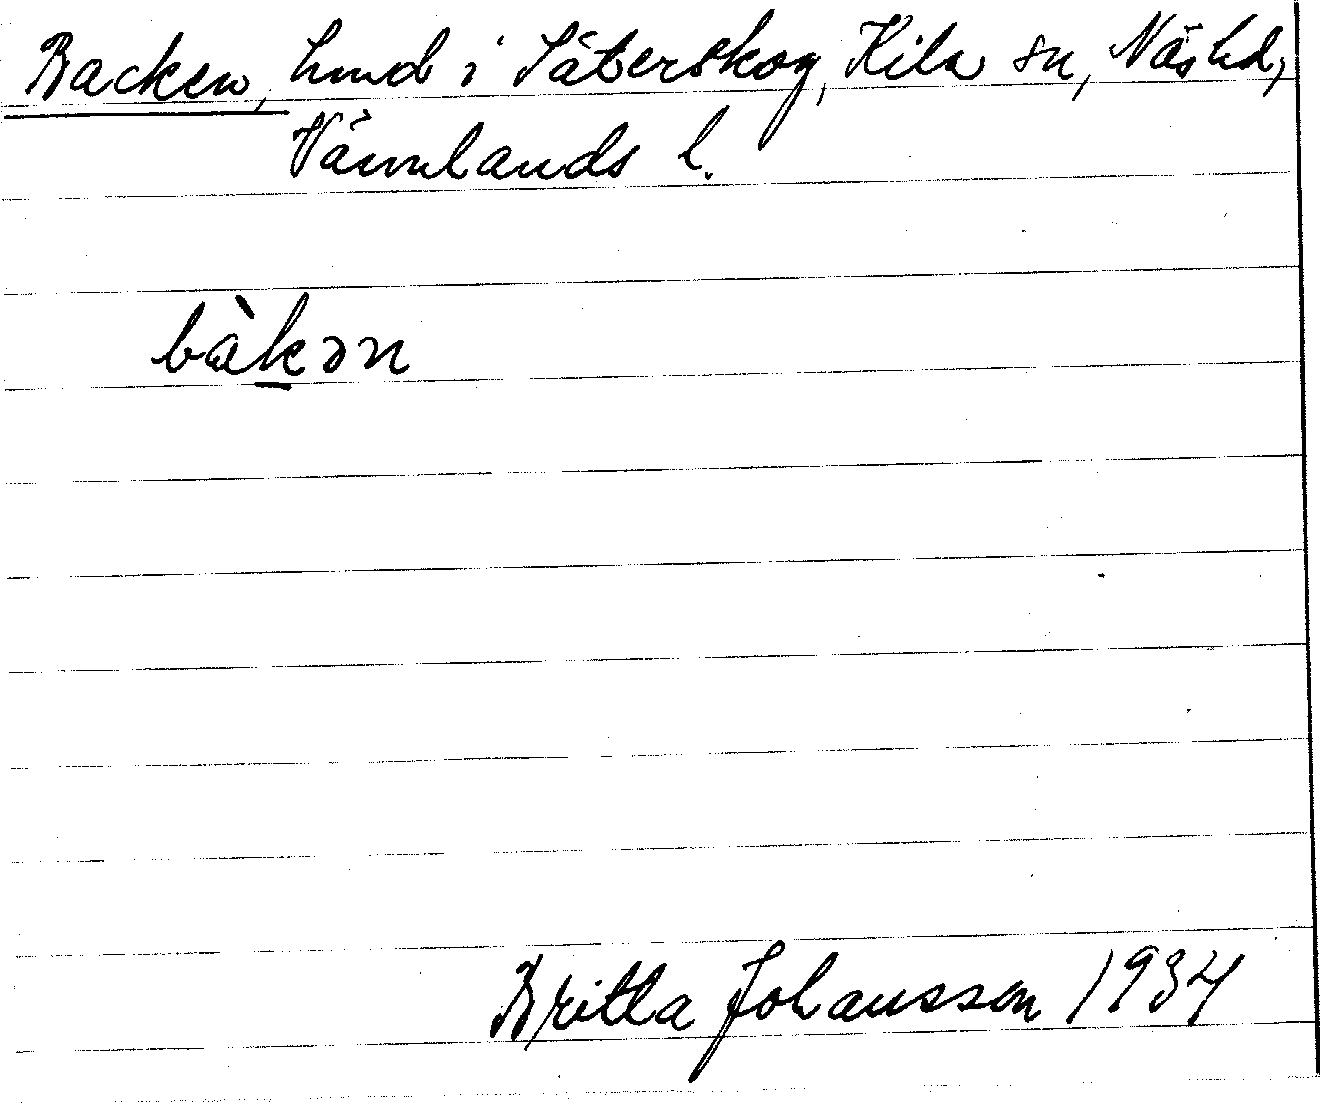 Backen, hmd i Säterskog, Kila sn, Näs hd,
Värmlands l.
bàk̲ən
Britta Johansson 1934